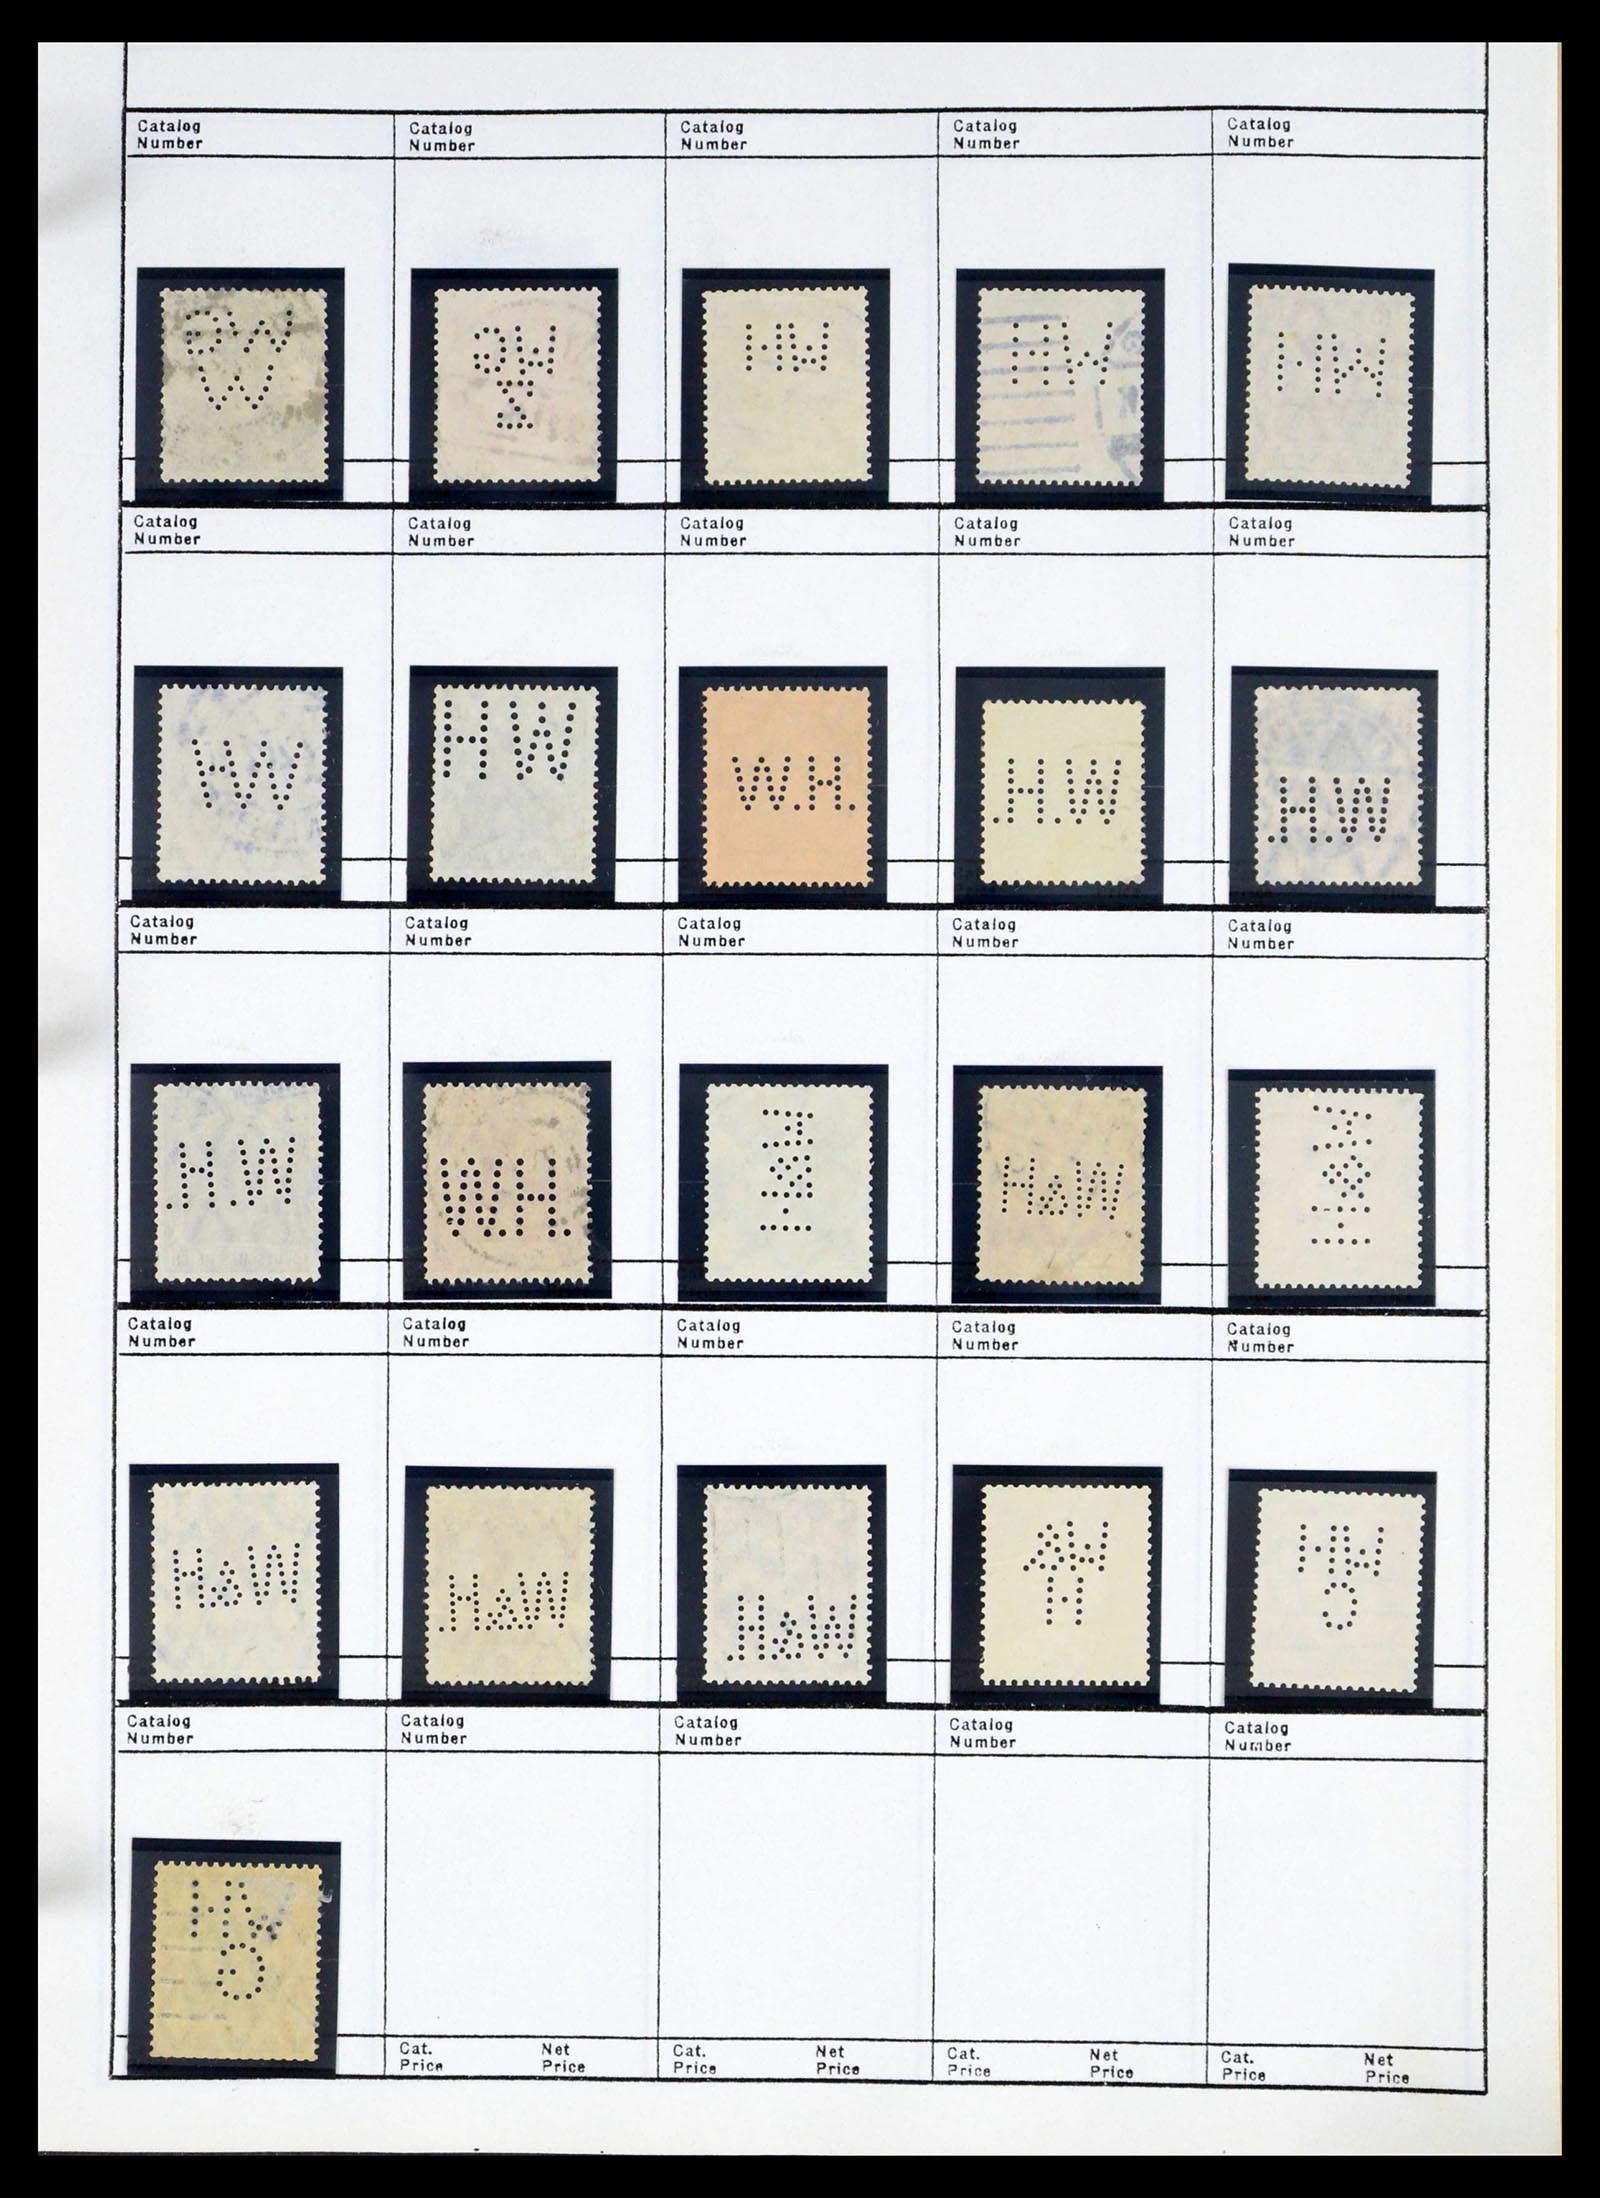 Catalog Number Catalog Number Catalog Number Catalog Number Catalog Number
HW HW HW
Catalog Number Catalog Number Catalog Number Catalog Number Catalog Number
HW HW W.H. .H.W .H.W
Catalog Number Catalog Number Catalog Number Catalog Number Catalog Number
.H.W W.H. H&W H&W H&W
Catalog Number Catalog Number Catalog Number Catalog Number Catalog Number
H&W .H&W .H&W HW
Catalog Number Catalog Number Catalog Number Catalog Number Catalog Number
HW
G
Cat. Price Net Price Cat. Price Net Price Cat. Price Net Price Cat. Price Net Price